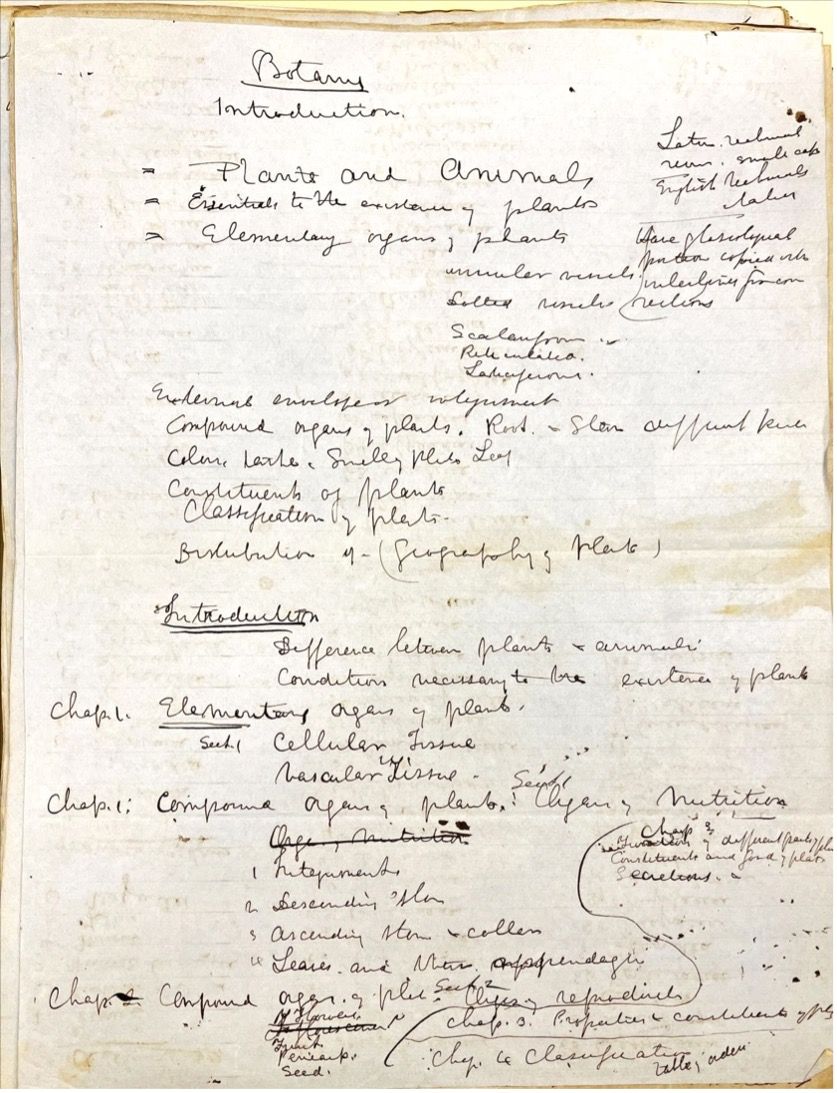 Botany
Introduction.
= Plants and Animals
= Essentials to the existence of plants
= Elementary organs of plants
Latin technical
small caps
English technicals
italics
Have glossological
portion copied with
vessels
Dotted vessels
Scalariform "
Reticulated.
Laticiferous.
External envelope or integument
Compound organs of plants. Root. - Stem different kinds
Colour, taste, Smell of plants Leaf
Constituents of plants
Classification of plants.
Distribution of - (Geography of plants)
Introduction
Difference between plants & animals
Conditions necessary to the existence of plants
Chap. 1. Elementary organs of plants.
Sect. 1 Cellular Tissue
Vascular Tissue -
Chap. 1: Compound organs of plants: Sect 1 Organs of Nutrition
Organs of Nutrition
1 Integuments
2 Descending stem
3 Ascending stem & collers
4 Leaves and their appendages
Chap 3
Functions of different parts of plants
Constituents and food of plants
Secretions.
Chap 2 Compound organs of plants Sect 2 Organs of reproduction
Flowers
Inflorescence
Fruit
Pericarp.
Seed.
Chap. 3. Properties & constituents of plants
Chap. 4 Classification
table of orders